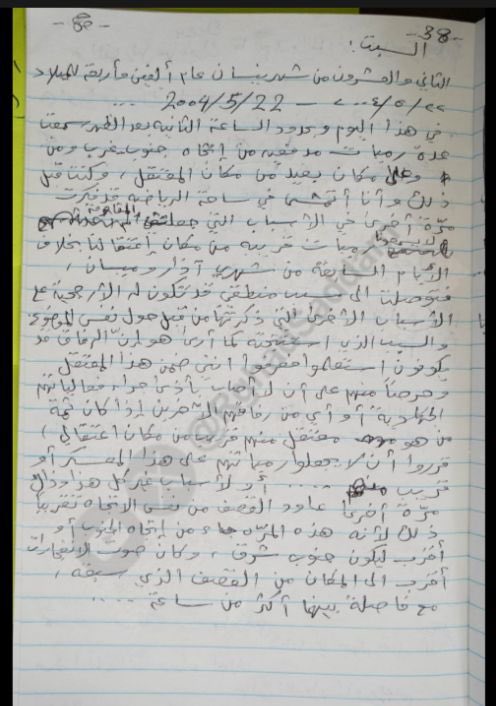 -38-
السبت :
الثاني والعشرون من شهر نيسان عام ألفين وأربعة للميلاد
٢٠٠٤/٥/٢٢ — 2004/5/22 ...
في هذا اليوم وبحدود الساعة الثانية بعد الظهر سمعت
عدة رميات مدفعية من إتجاه جنوب غرب ومن
وعلى مكان بعيد من مكان المعتقل ، وكنت قبل
ذلك وأنا أتمشى في ساحة الرياضة قد فكرت
مرّة أخرى في الأسباب التي جعلت المقاومة
رميات قريبة من مكان إعتقالنا بخلاف
الأيام السابقة من شهري آذار ونيسان ،
فتوصلت الى سبب منطقي قد تكون له الأرجحية مع
الأسباب الأخرى التي ذكرتها من قبل حول نفس الموضوع
والسبب الذي استنتجته كما أرى هو إنّ الرفاق قد
يكونون استعلموا فعلموا أنني ضمن هذا المعتقل
وحرصاً منهم على أن لا أصاب بأذى جراء فعالياتهم
الجهادية أو أي من رفاقهم الآخرين إذا كان ثمة
من هو معتقل منهم قريب من مكان اعتقالي ،
قرروا أن لا يجعلوا رمياتهم على هذا المعسكر أو
قريب منه .... أو لأسباب غير كل هذا وذاك
مرّة أخرى عاود القصف من نفس الاتجاه تقريباً
ذلك لأنه هذه المرّة جاء من إتجاه الجنوب أو
أقرب ليكون جنوب شرق ، وكان صوت الانفجارات
أقرب الى المكان من القصف الذي سبقه ،
مع فاصلة بينهما أكثر من ساعة .....
@RghadSaddam